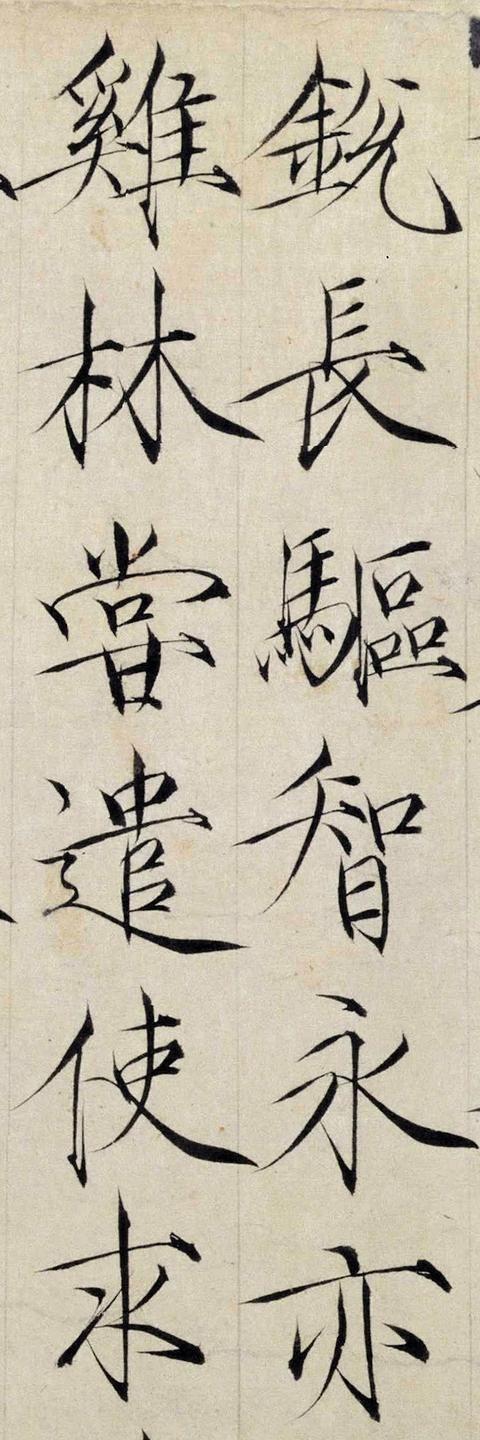 銳長驅智永亦
雞林嘗遣使求